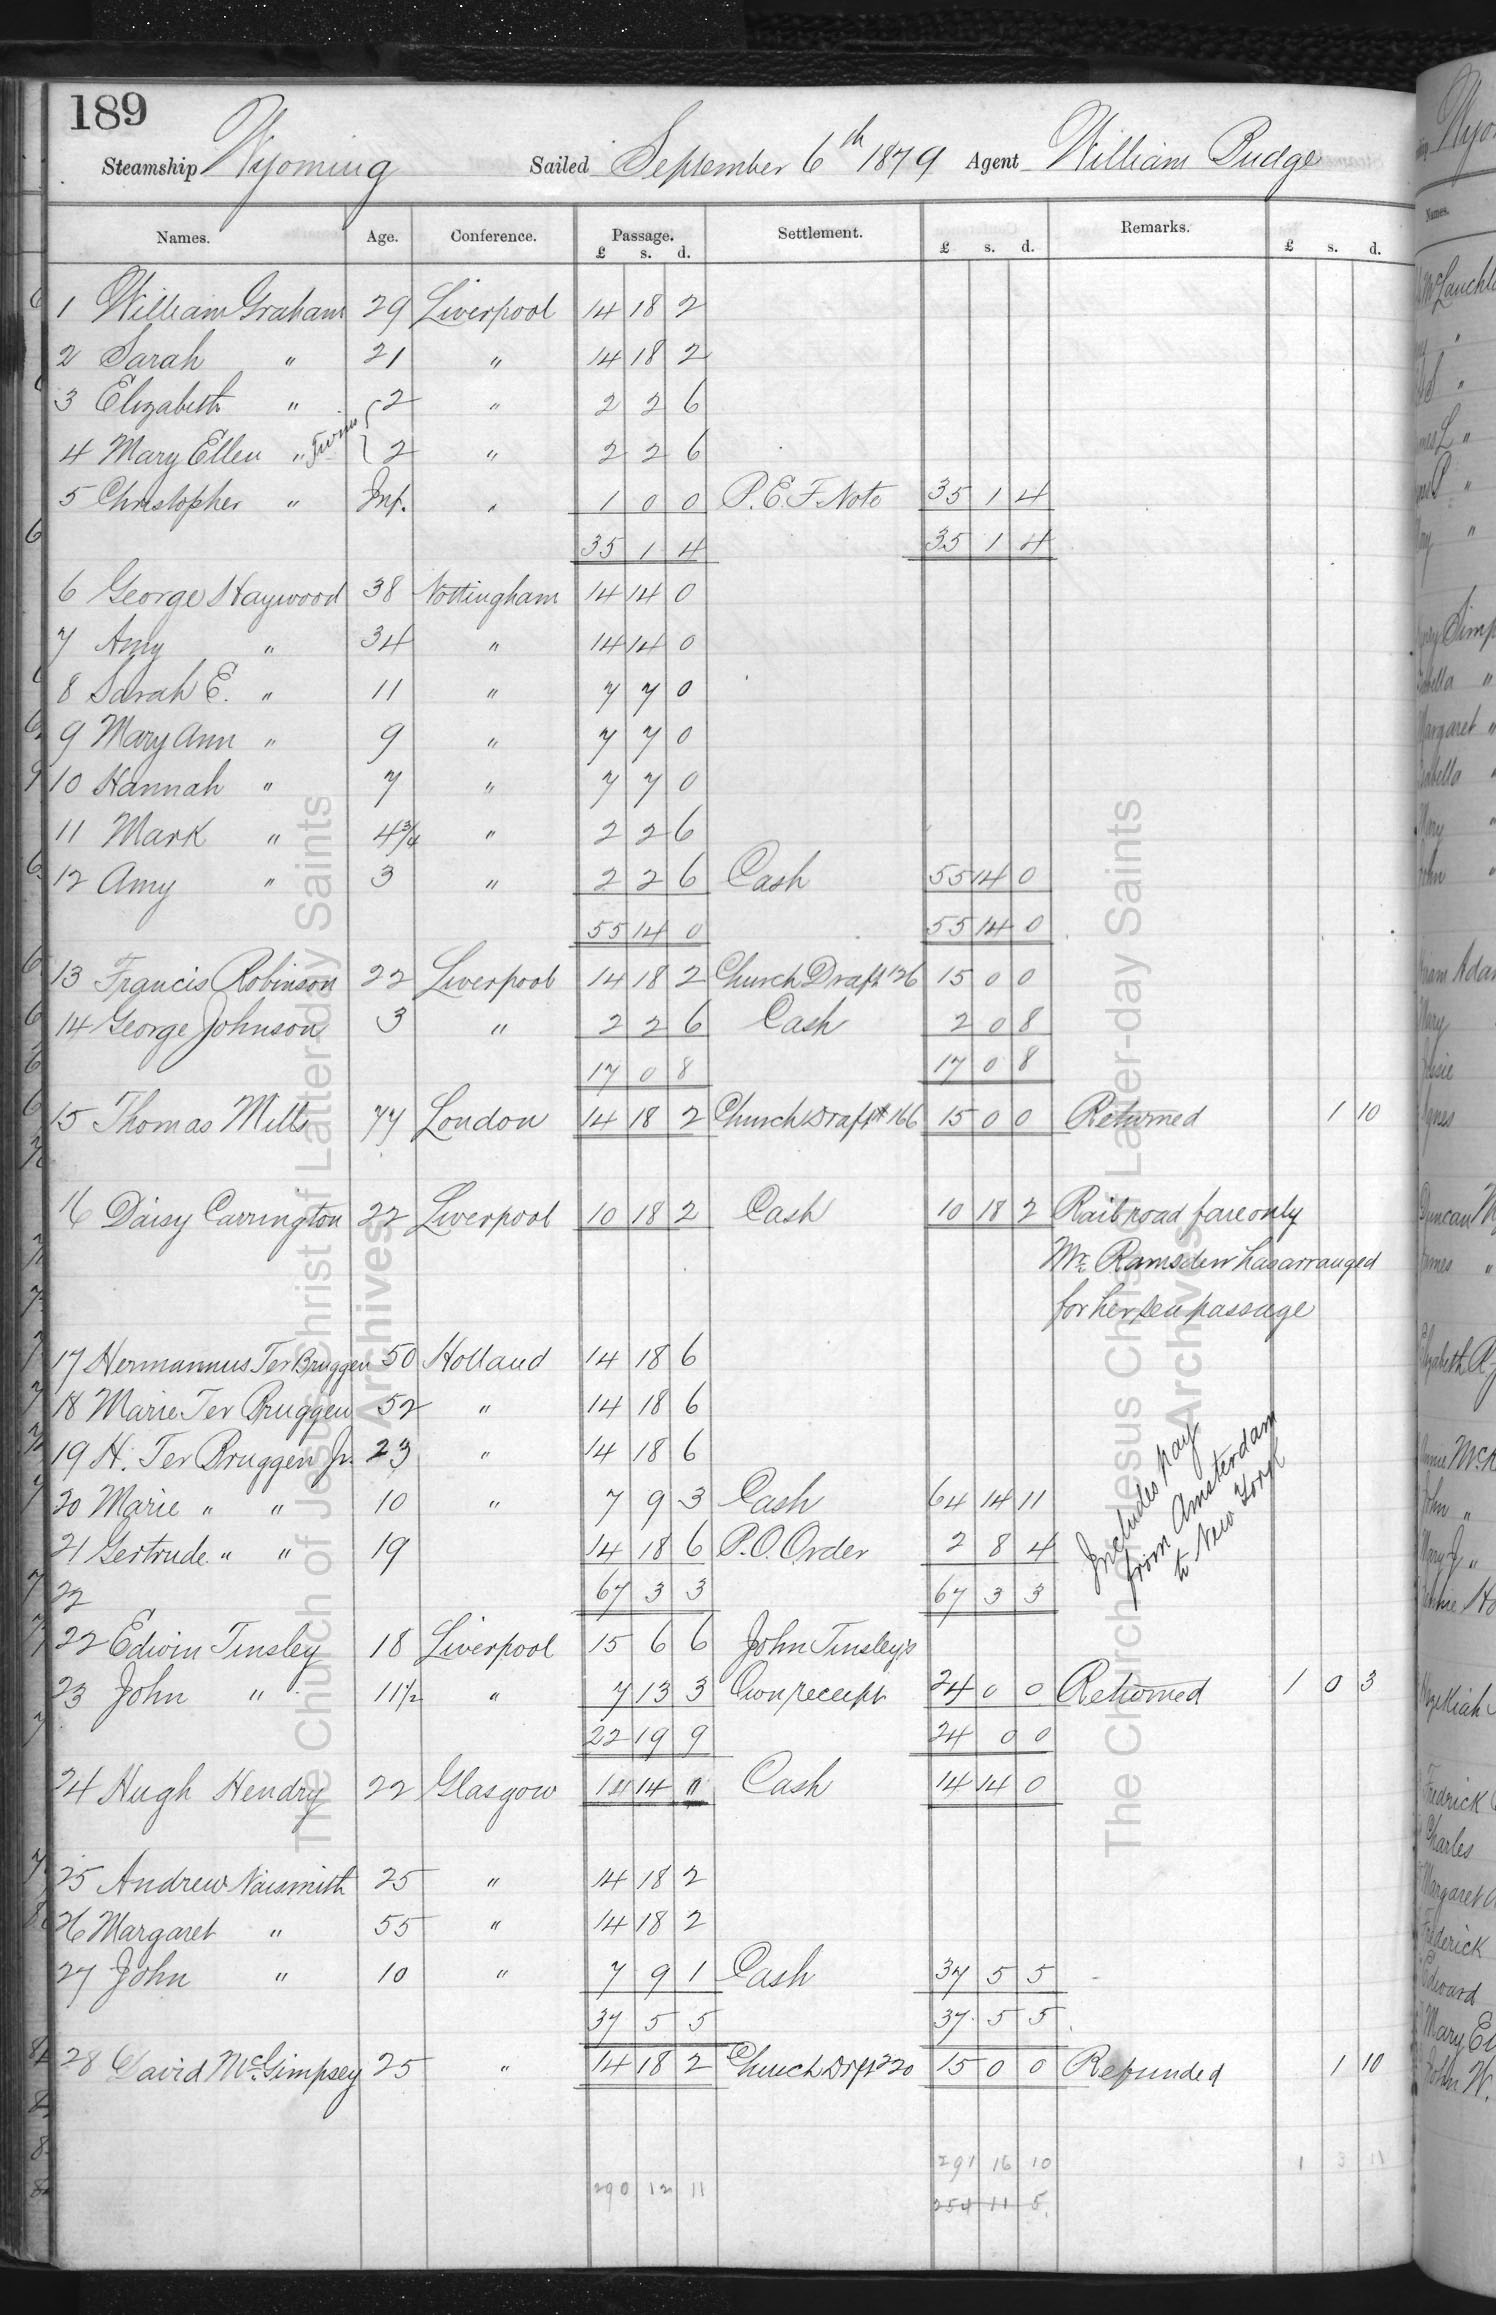 189
Steamship Wyoming Sailed September 6th 1879 Agent William Budge
Names. Age. Conference. Passage. £ s. d. Settlement. £ s. d. Remarks. £ s. d.
1 William Graham 29 Liverpool 14 18 2
2 Sarah " 21 " 14 18 2
3 Elizabeth " 2 " 2 2 6
4 Mary Ellen " Twins 2 " 2 2 6
5 Christopher " Inf. " 1 0 0 P.E.F. Note 35 1 4
35 1 4 35 1 4
6 George Haywood 38 Nottingham 14 14 0
7 Amy " 34 " 14 14 0
8 Sarah E. " 11 " 7 7 0
9 Mary Ann " 9 " 7 7 0
10 Hannah " 7 " 7 7 0
11 Mark " 4 3/4 " 2 2 6
12 Amy " 3 " 2 2 6 Cash 55 14 0
55 14 0 55 14 0
13 Francis Robinson 22 Liverpool 14 18 2 Church Draft 126 15 0 0
14 George Johnson 3 " 2 2 6 Cash 2 0 8
17 0 8 17 0 8
15 Thomas Mills 77 London 14 18 2 Church Draft # 166 15 0 0 Returned 1 10
16 Daisy Carrington 22 Liverpool 10 18 2 Cash 10 18 2 Railroad fare only
Mr. Ramsden has arranged
for her sea passage
17 Hermannus Ter Bruggen 50 Holland 14 18 6
18 Marie Ter Bruggen 52 " 14 18 6
19 H. Ter Bruggen Jr. 23 " 14 18 6
20 Marie " " 10 " 7 9 3 Cash 64 14 11
21 Gertrude " " 19 14 18 6 P.O. Order 2 8 4
Includes pay
from Amsterdam
to New York
22 67 3 3 67 3 3
22 Edwin Tinsley 18 Liverpool 15 6 6 John Tinsley's
23 John " 11 1/2 " 7 13 3 Own receipt 24 0 0 Returned 1 0 3
22 19 9 24 0 0
24 Hugh Hendry 22 Glasgow 14 14 " Cash 14 14 0
25 Andrew Naismith 25 " 14 18 2
26 Margaret " 55 " 14 18 2
27 John " 10 " 7 9 1 Cash 37 5 5
37 5 5 37 5 5
28 David McGimpsey 25 " 14 18 2 Church Drft 220 15 0 0 Refunded 1 10
291 16 10 1 3 11
290 12 11
254 11 5
The Church of Jesus Christ of Latter-day Saints
Archives
The Church of Jesus Christ of Latter-day Saints
Archives